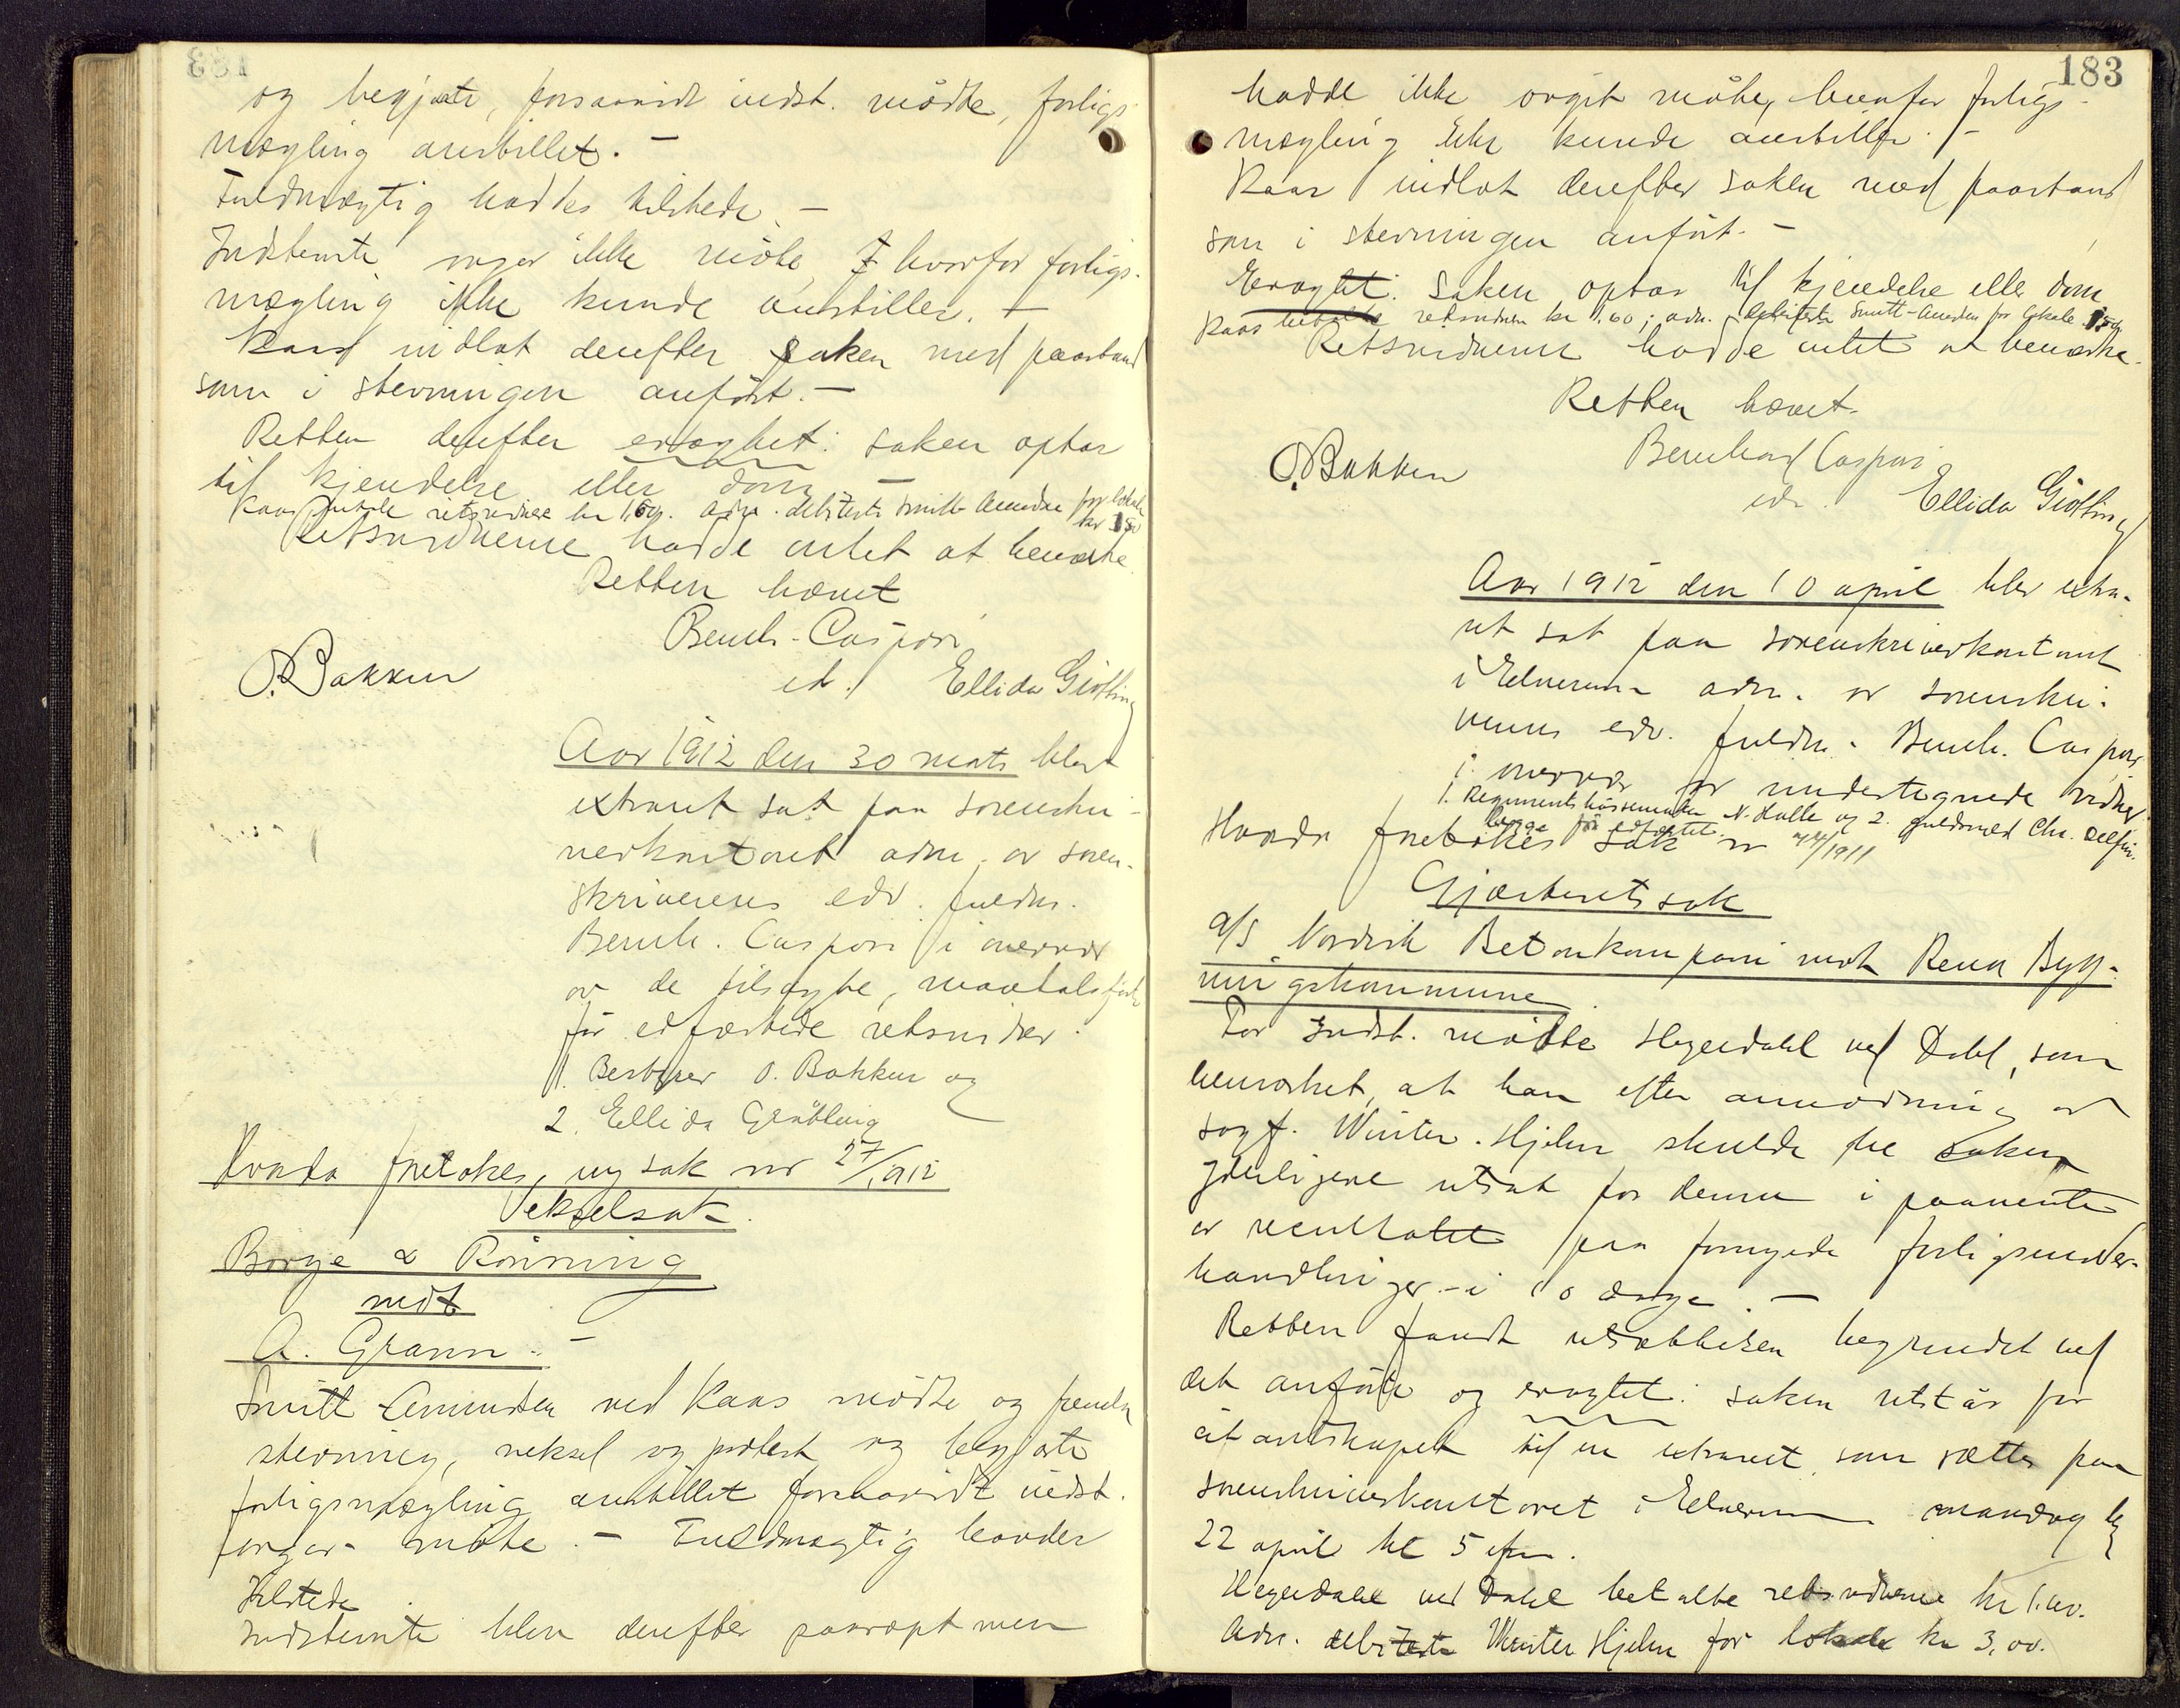 og begjærte, forsaavidt indst. mødte, forligs-
mægling anstillet. -
Fuldmægtig hadtes tilstede. -
Indstevnte avgav ikke møte, hvorfor forligs-
mægling ikke kunde anstilles. -
Kaas indlot derefter saken med paastand
som i stevningen anført. -
Retten derefter eragtet: saken optas
til kjendelse eller dom -
Kaas betalte retsvidnene kr 1,60. Adm. debiterte Smitt Amundsen for lokale
kr 1,50
Retsvidnerne hadde intet at bemærke.
Retten hævet
Bernh. Caspari
edv.
O. Bakken
Ellida Grøtting
Aar 1912 den 30 mats blev
extraret sat paa sorenskri-
verkontoret adm. av soren-
skriverens edv. fuldm.
Bernh. Caspari i overvær
av de tilsagte, mantalsførte
før edfæstede retsvidner:
1. Bestyrer O. Bakken og
2. Ellida Grøtting
Hvorda foretokes, ny sak nr 27/1912
Vekselsak.
Borge & Rønning
mot
A. Gramm. -
Smitt-Amundsen ved Kaas mødte og fremla
stevning, veksel og protest og begjærte
forligsmægling anstillet forsaavidt indst.
avgav møte. - Fuldmægtig havdes
tilstede.
Indstevnte blev derefter paaropt men
183
hadde ikke avgit møte, hvorfor forligs-
mægling ikke kunde anstilles. -
Kaas indlot derefter saken med paastand
som i stevningen anført. -
Eragtet: Saken optas til kjendelse eller dom
Kaas betalte retsvidnene kr 1.60; adm. debiterte Smitt-Amundsen for lokale 1,50
Retsvidnerne hadde intet at bemærke.
Retten hævet.
Bernhard Caspari
edv.
O. Bakken
Ellida Grøtting
Aar 1912 den 10 april blev extra-
ret sat paa sorenskriverkontoret
i Elverum adm. av sorenskri-
verens edv. fuldm. Bernh. Caspari
i overvær av undertegnede vidner
1. Regimentsbøssemaker N. Halle og 2. guldsmed Chr. Delfin.
begge før edfæstet.
Hvorda foretokes sak nr 44/1911
Gjæsteretssak
A/S Nordisk Betonkompani mot Rena Byg-
ningskommune.
For Indst. mødte Hegerdahl ved Dahl, som
bemærket, at han efter anmodning av
sagf. Winter-Hjelm skulde be saken
yderligere utsat for denne i paavente
av resultatet paa fornyede forligsunder-
handlinger - i 10 dage. -
Retten fandt utsættelsen begrundet ved
det anførte og eragtet: saken utstår for
citantskapet til en extraret, som sættes paa
sorenskriverkontoret i Elverum mandag
22 april kl 5 efm.
Hegerdahl ved Dahl betalte retsvidnerne kr 1.60.
Adm. debiterte Winter Hjelm for lokale kr 3,00.